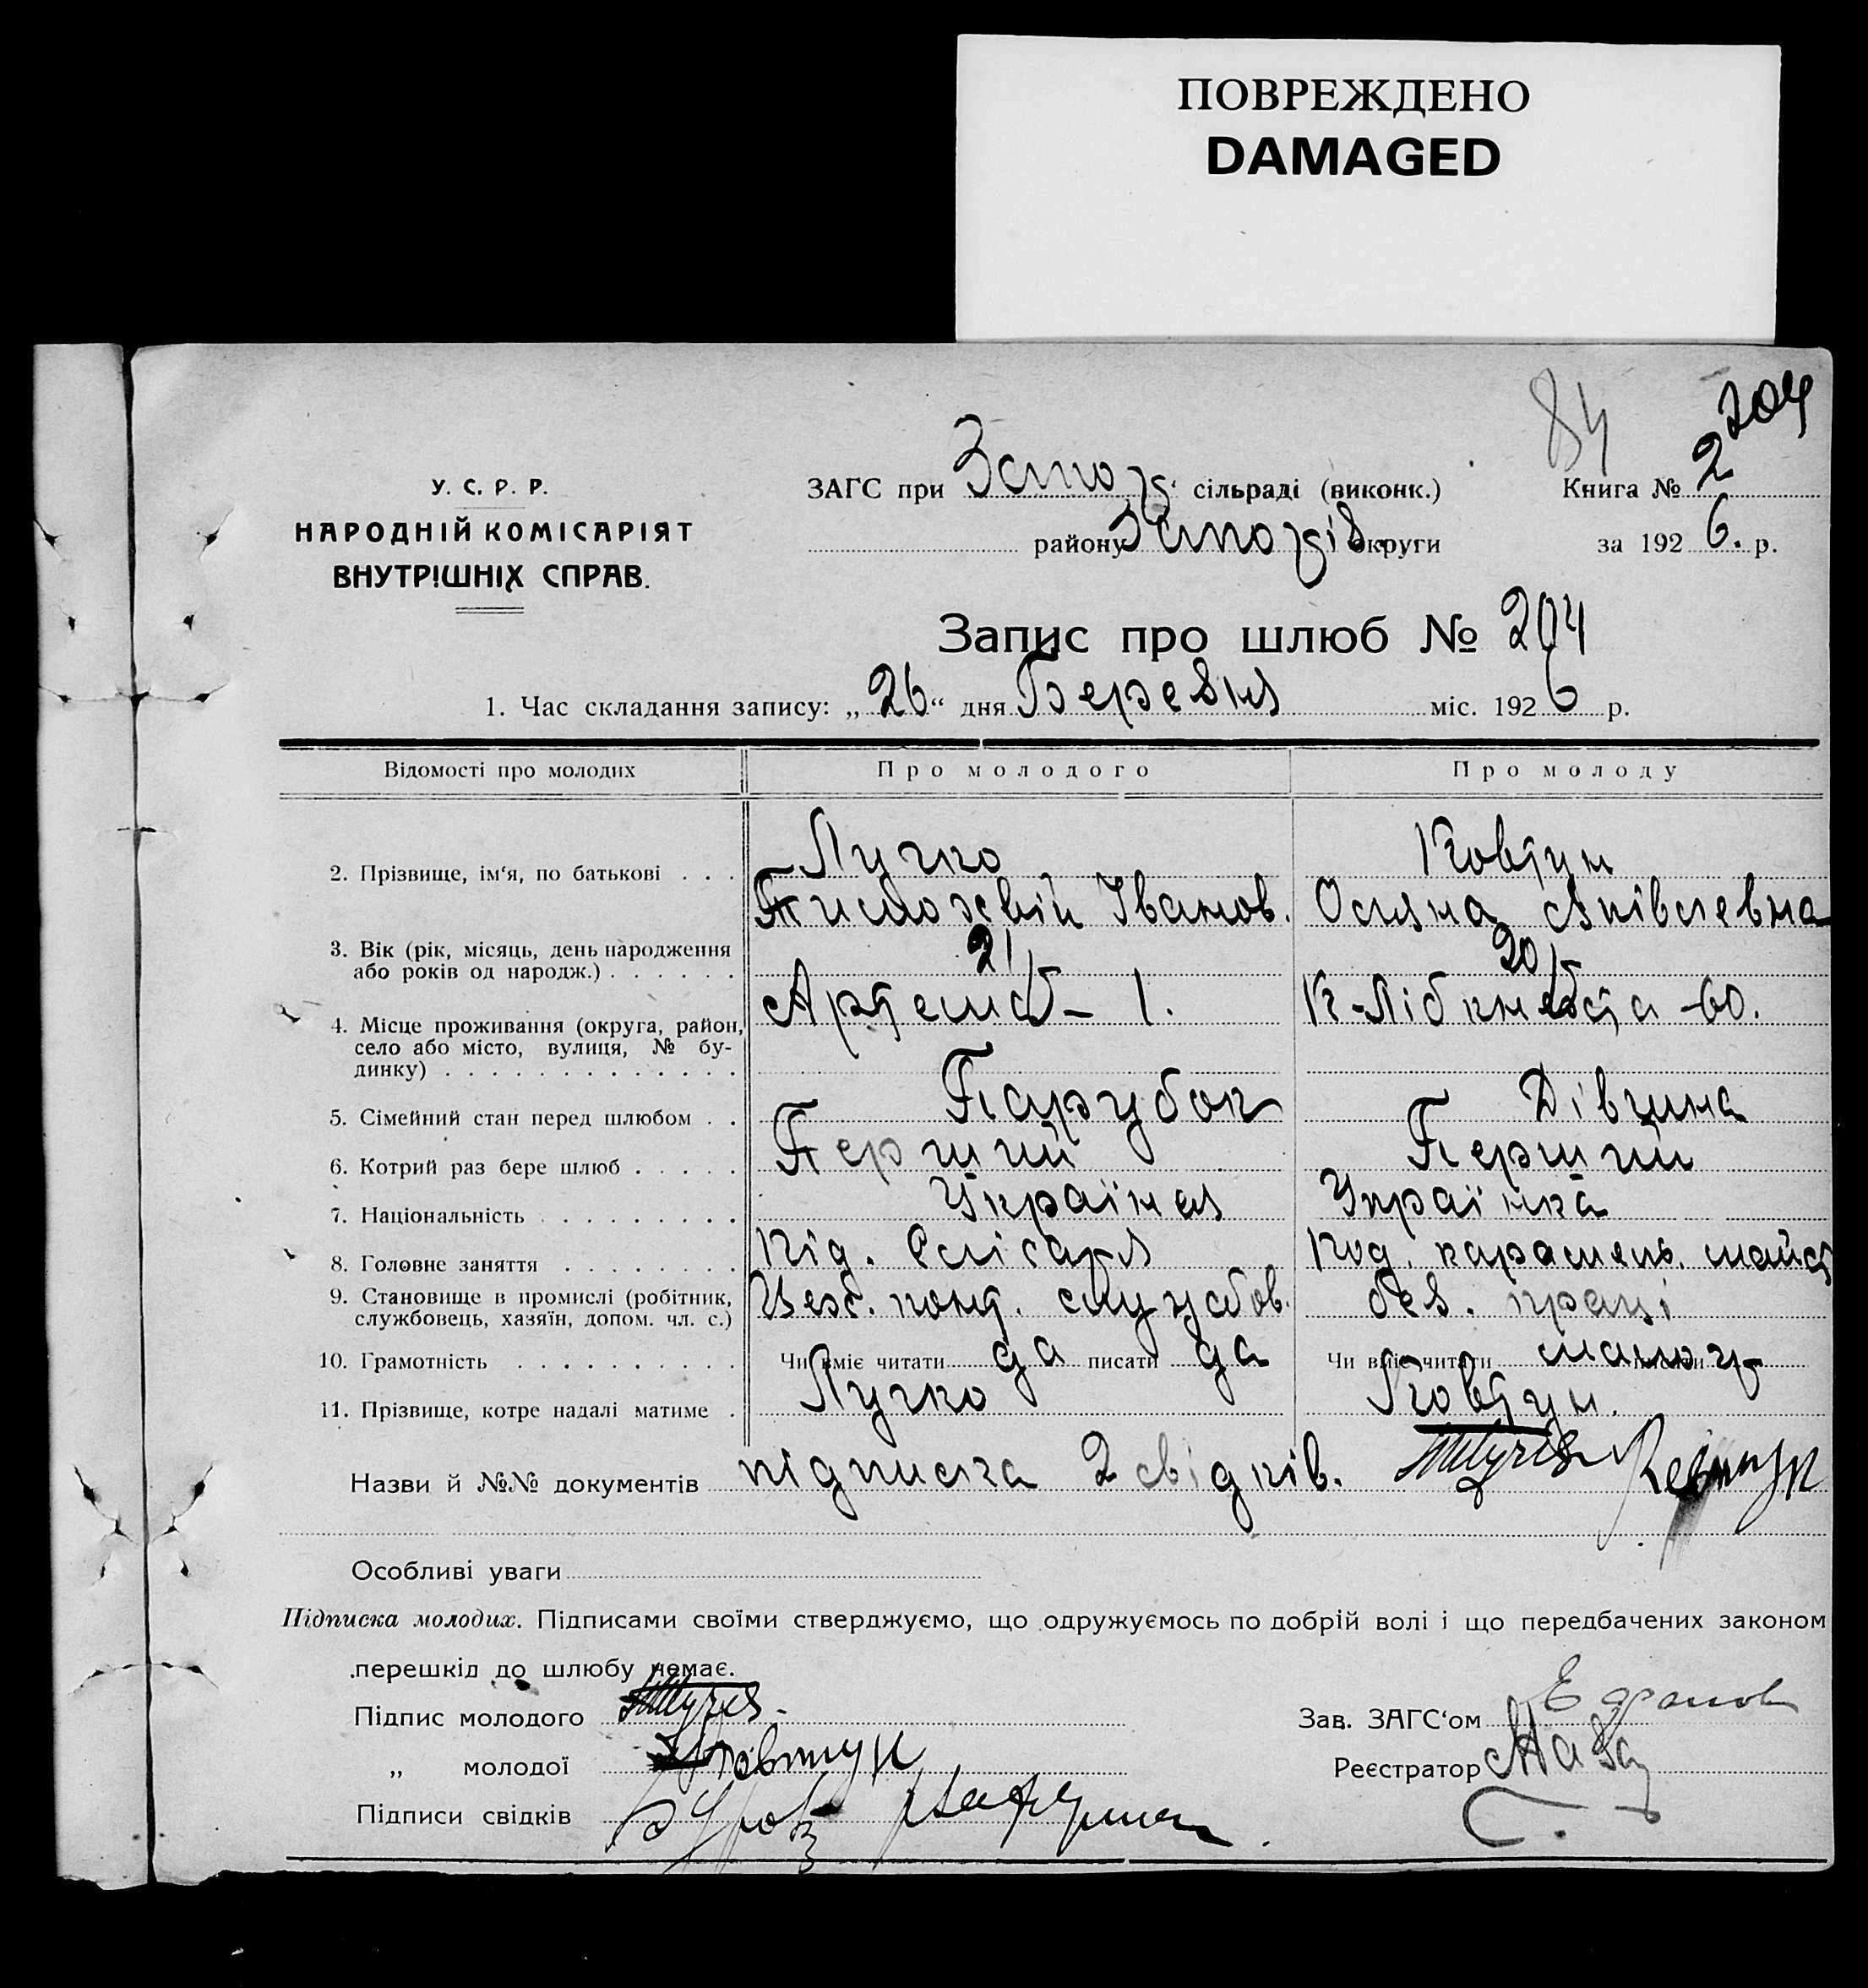 ПОВРЕЖДЕНО
DAMAGED
84
204
У. С. Р. Р.
НАРОДНІЙ КОМІСАРІЯТ
ВНУТРІШНІХ СПРАВ.
ЗАГС при сільраді (виконк.)
Книга № 2
району округи
за 1926. р.
Запис про шлюб № 204
1. Час складання запису: „26“ дня Березня міс. 1926 р.
Відомості про молодих Про молодого Про молоду
2. Прізвище, ім‘я, по батькові . . . Лучко Ковтун
Тимохвій Іванов. Оксана
3. Вік (рік, місяць, день народження 21 20
або років од народж.) . . . . . .
4. Місце проживання (округа, район, Артема – 1. К-Лібкнехта 60.
село або місто, вулиця, № бу-
динку) . . . . . . . . . . . . .
5. Сімейний стан перед шлюбом . . Парубок Дівчина
6. Котрий раз бере шлюб . . . . . Перший Перший
7. Національність . . . . . . . . . Українец Українка
8. Головне заняття . . . . . . . .
9. Становище в промислі (робітник, без. праці
службовець, хазяїн, допом. чл. с.)
10. Грамотність . . . . . . . . . . Чи вміє читати да писати да Чи вміє читати писати
11. Прізвище, котре надалі матиме . Лучко Ковтун.
Назви й №№ документів підписка 2 свідків.
Особливі уваги
Підписка молодих. Підписами своїми стверджуємо, що одружуємось по добрій волі і що передбачених законом
перешкід до шлюбу немає.
Підпис молодого
Зав. ЗАГС‘ом
„ молодої Ковтун
Реєстратор
Підписи свідків